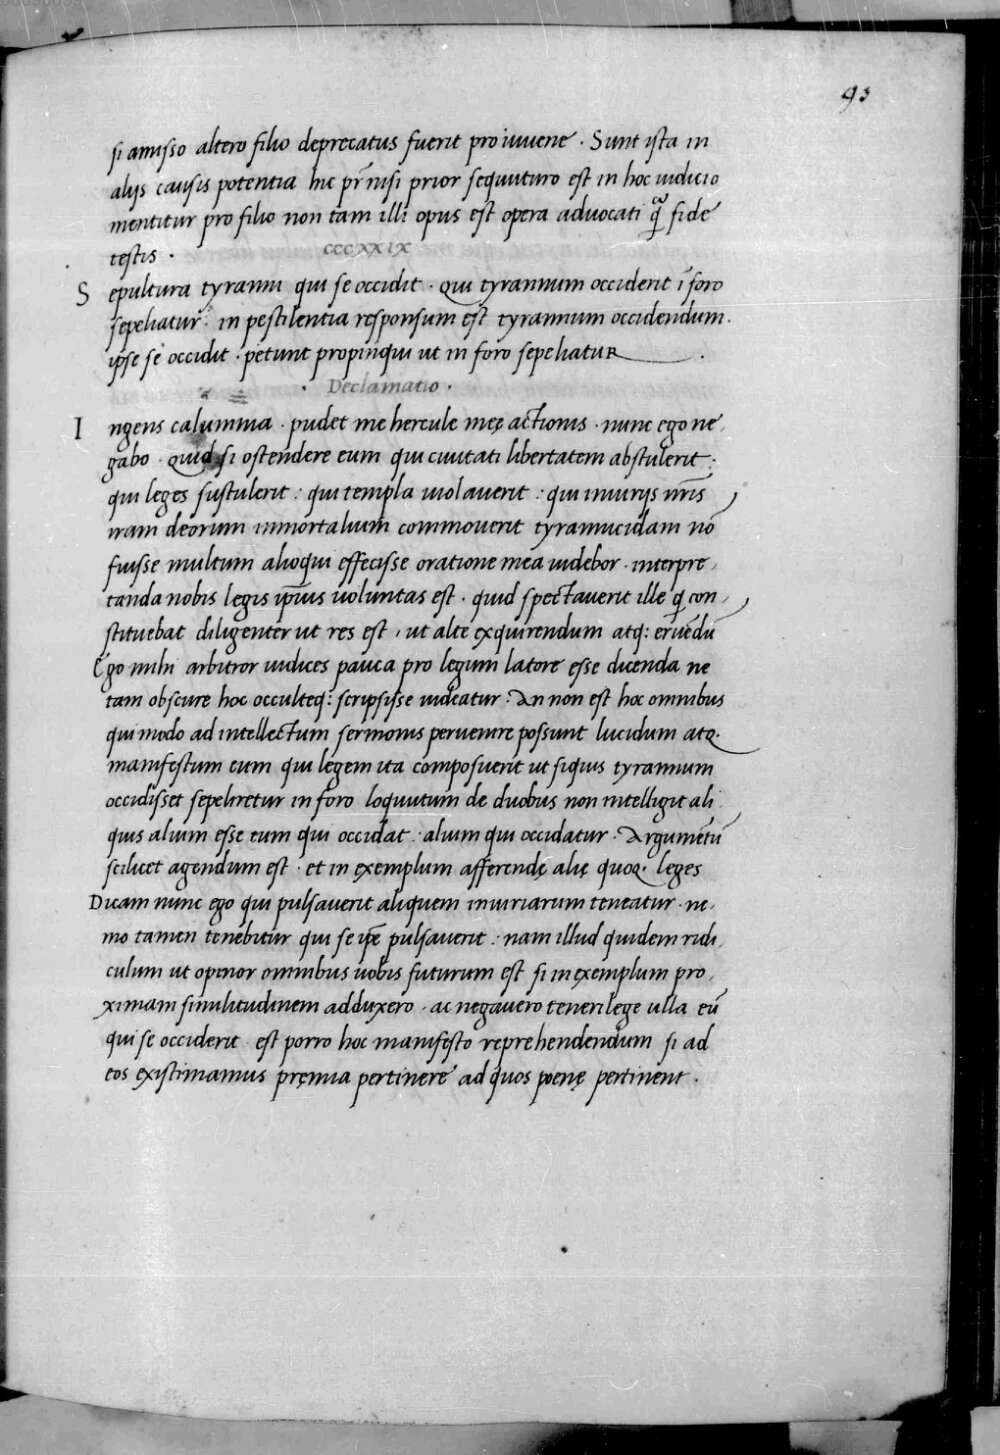 93
si amisso altero filio deprecatus fuerit pro iuuene · Sunt ista in
alijs causis potentia hic pr̄ nisi prior sequuturo est in hoc iudicio
mentitur pro filio non tam illi opus est opera aduocati q̃ fide
testis ·
CCCXXIX
Sepultura tyranni qui se occidit · Qui tyrannum occiderit ī foro
sepeliatur : in pestilentia responsum est tyrannum occidendum ·
ipse se occidit · petunt propinqui ut in foro sepeliatur ·
· Declamatio ·
Ingens calumnia · pudet me hercule meę actionis · nunc ego ne
gabo · Quid si ostendere eum qui ciuitati libertatem abstulerit ·
qui leges sustulerit : qui templa uiolauerit : qui iniurijs nr̄is
iram deorum inmortalium commouerit tyrannicidam nō
fuisse multum alioqui effecisse oratione mea uidebor · interpre
tanda nobis legis ip̄ius uoluntas est · quid spectauerit ille q con
stituebat diligenter ut res est , ut alte exquirendum atq: eruēdū
Ego mihi arbitror iudices pauca pro legum latore esse dicenda ne
tam obscure hoc occulteq: scripsisse uideatur : An non est hoc omnibus
qui modo ad intellectum sermonis peruenire possunt lucidum atq.
manifestum eum qui legem ita composuerit ut siquis tyrannum
occidisset sepeliretur in foro loquutum de duobus non intelligit ali
quis alium esse eum qui occidat : alium qui occidatur · Argumētū
scilicet agendum est · et in exemplum afferendę alię quoq. leges
Dicam nunc ego qui pulsauerit aliquem iniuriarum teneatur · ne
mo tamen tenebitur qui se ip̄e pulsauerit : nam illud quidem ridi
culum ut opinor omnibus uobis futurum est si in exemplum pro
ximam similitudinem adduxero · ac negauero teneri lege ulla eū
qui se occiderit est porro hoc manifesto reprehendendum si ad
eos existimamus pręmia pertinere ad quos poenę pertinent ·